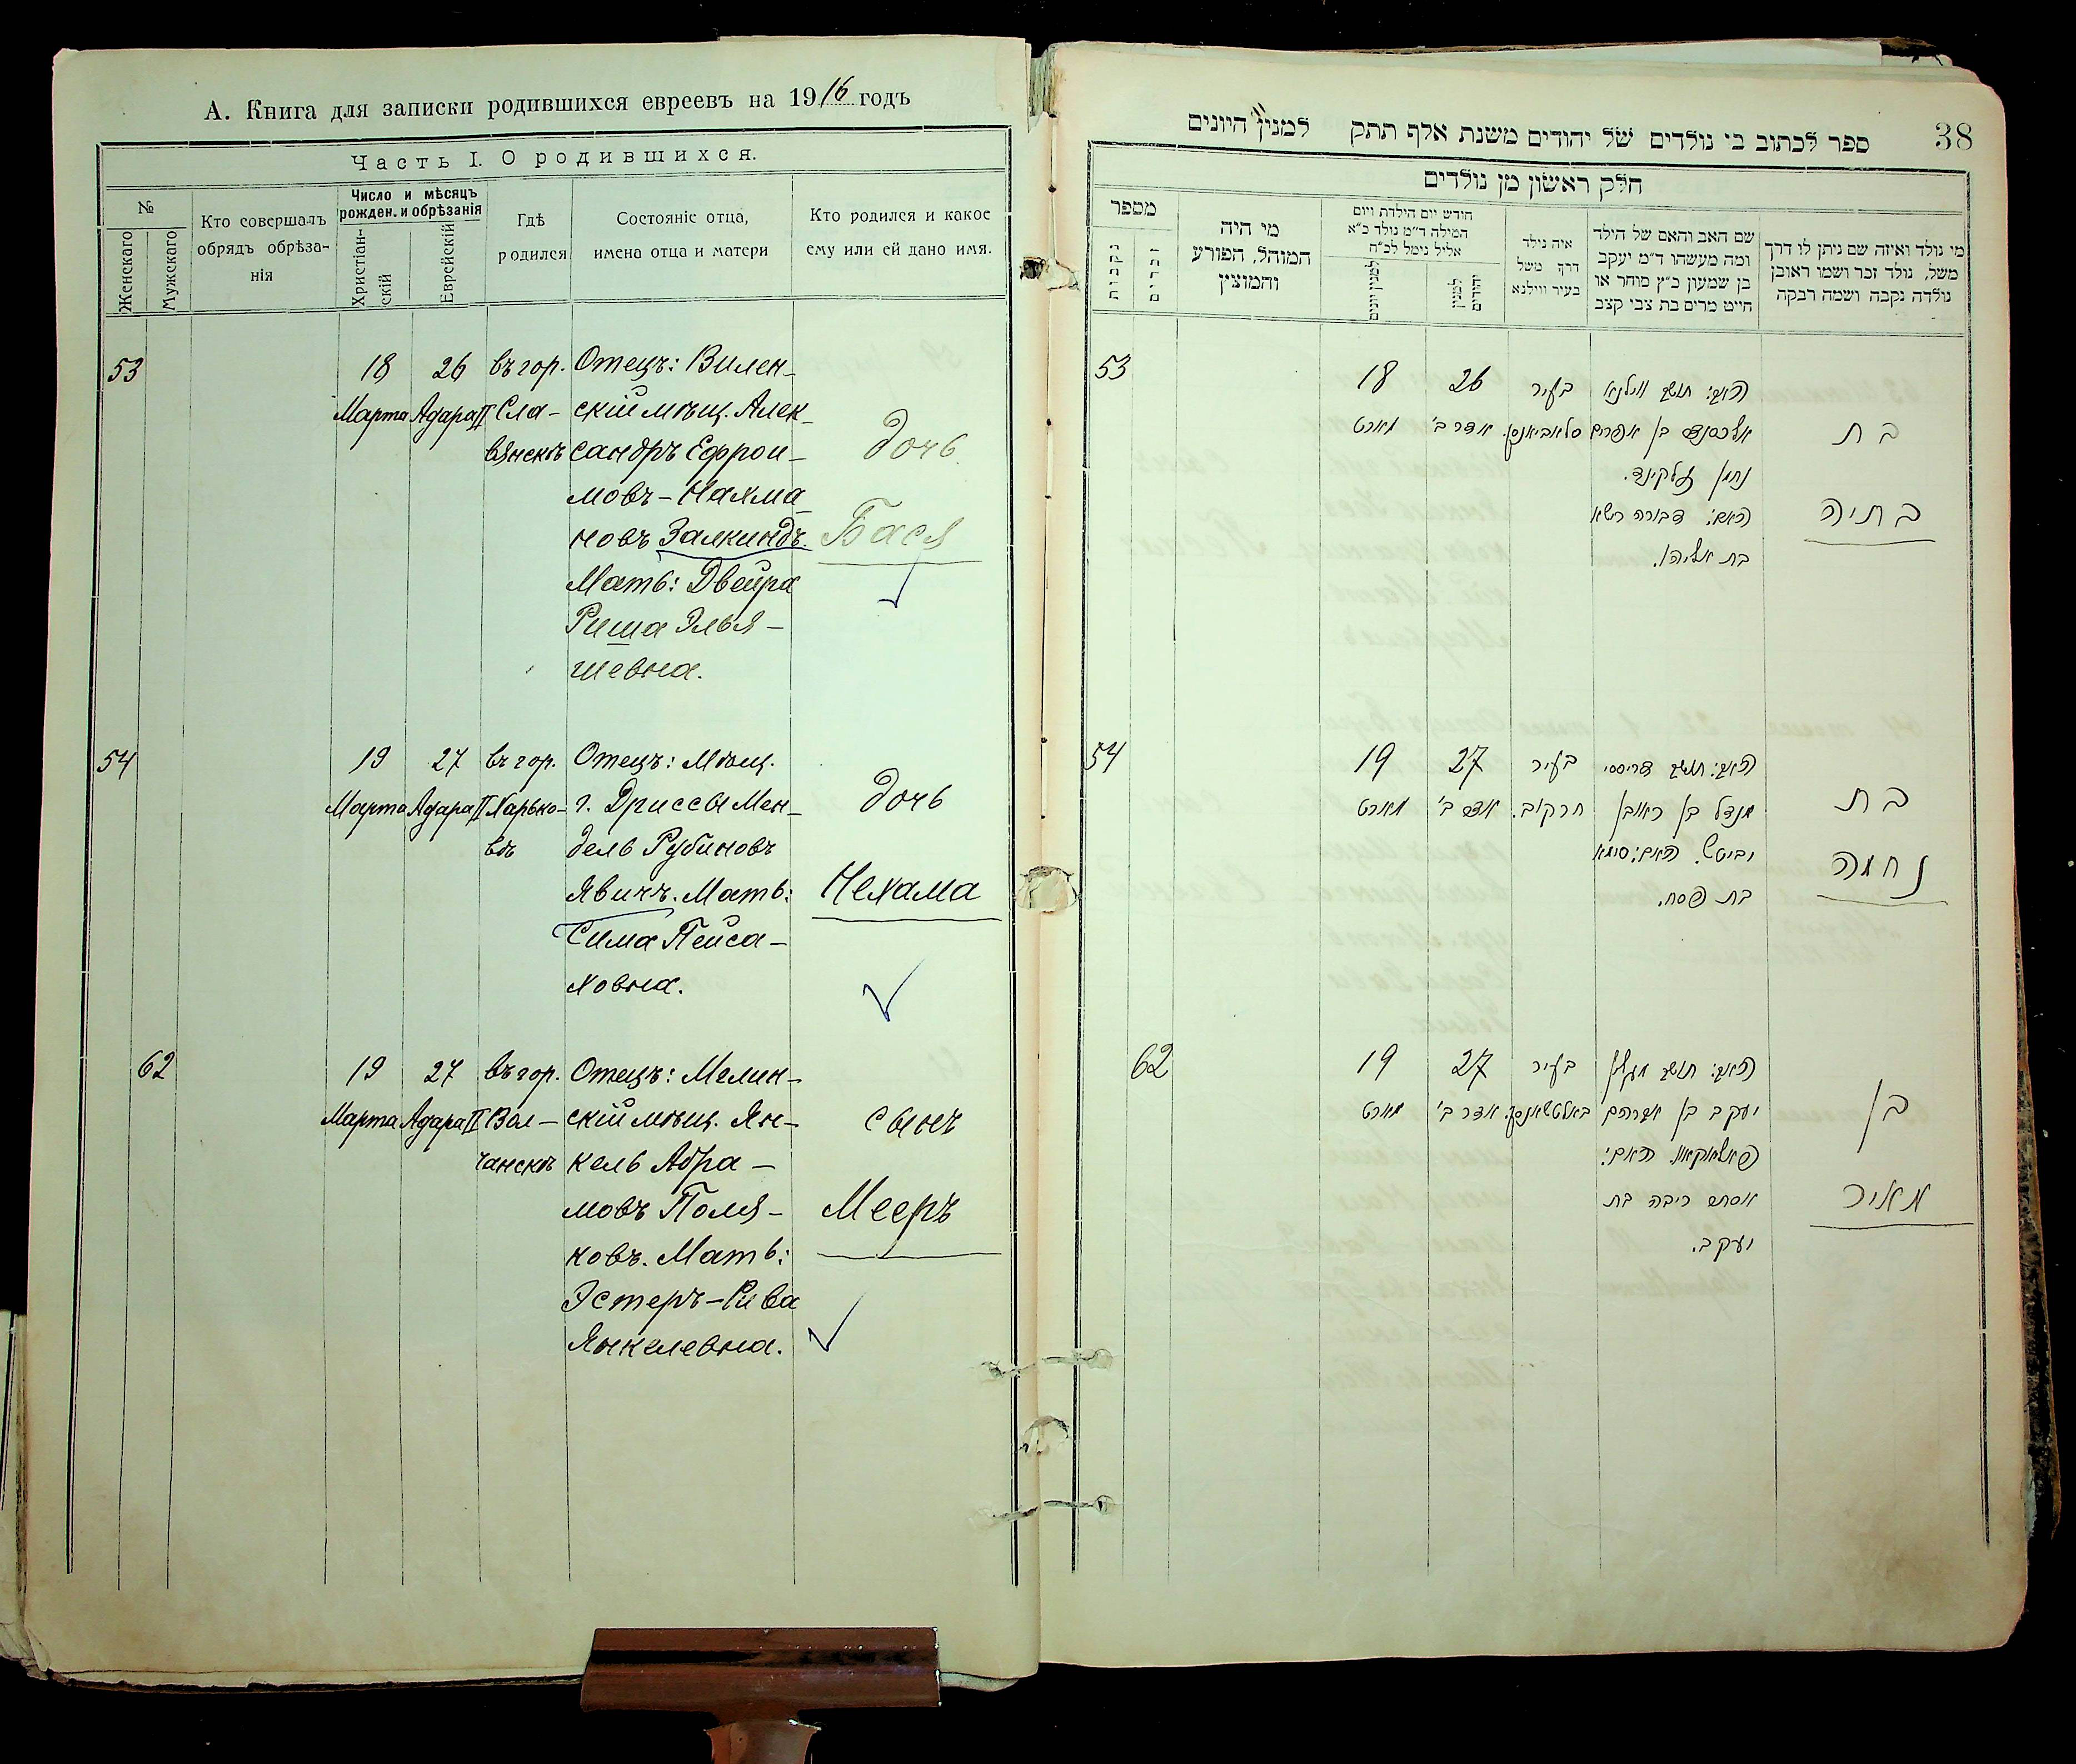 А. Книга для записки родившихся евреевъ на 1916 годъ
Часть I. О родившихся.
№
Женскаго
Мужскаго
Кто совершалъ
обрядъ обрѣза-
нія
Число и мѣсяцъ
рожден. и обрѣзанія
Христіан-
скій
Еврейскій
Гдѣ
родился
Состояніе отца,
имена отца и матери
Кто родился и какое
ему или ей дано имя.
53
18
Марта
26
Адара II
въ гор.
Сла-
вянскѣ
Отецъ: Вилен-
скій мѣщ. Алек-
сандръ Ефрои-
мовъ-Нахма-
новъ Залкиндъ.
Мать: Двейра
Риша Элья-
шевна.
дочь
Бася
54
19
Марта
27
Адара II
въ гор.
Харько-
вѣ
Отецъ: Мѣщ.
г. Дриссы Мен-
дель Рубиновъ
Явичъ. Мать:
Сима Пейса-
ховна.
дочь
Нехама
62
19
Марта
27
Адара II
въ гор.
Вол-
чанскѣ
Отецъ: Мглин-
скій мѣщ. Ян-
кель Абра-
мовъ Поля-
ковъ. Мать:
Эстеръ-Рива
Янкелевна.
сынъ
Мееръ
38
ספר לכתוב בי נולדים של יהודים משנת אלף תתק למנין היונים
חלק ראשון מן נולדים
מספר
נקבות
זכרים
מי היה
המוהל, הפורע
והמוצץ
חודש יום הילדת ויום
המילה ד"מ נולד כ"א
אליל נימל לכ"ח
למנין יונים
למנין
יהודים
איה נילד
דרך משל
בעיר ווילנא
שם האב והאם של הילד
ומה מעשהו ד"מ יעקב
בן שמעון כ"ץ סוחר או
חייט מרים בת צבי קצב
מי נולד ואיזה שם ניתן לו דרך
משל, נולד זכר ושמו ראובן
נולדה נקבה ושמה רבקה
53
18
מארט
26
אדר ב'
בעיר
סלאביאנסק.
האב: תושב ווילנא
אלכסנדר בן אפרים
נחמן זלקינד.
האם: דבורה רישא
בת אליהו.
בת
בתיה
54
19
מארט
27
אדר ב'
בעיר
חרקוב.
האב: תושב דריססי
מנדל בן ראובן
יביטש. האם: סימא
בת פסח.
בת
נחמה
62
19
מארט
27
אדר ב'
בעיר
באלטשאנסק.
האב: תושב מגלין
יעקב בן אברהם
פאליאקאוו. האם:
אסתר ריבה בת
יעקב.
בן
מאיר